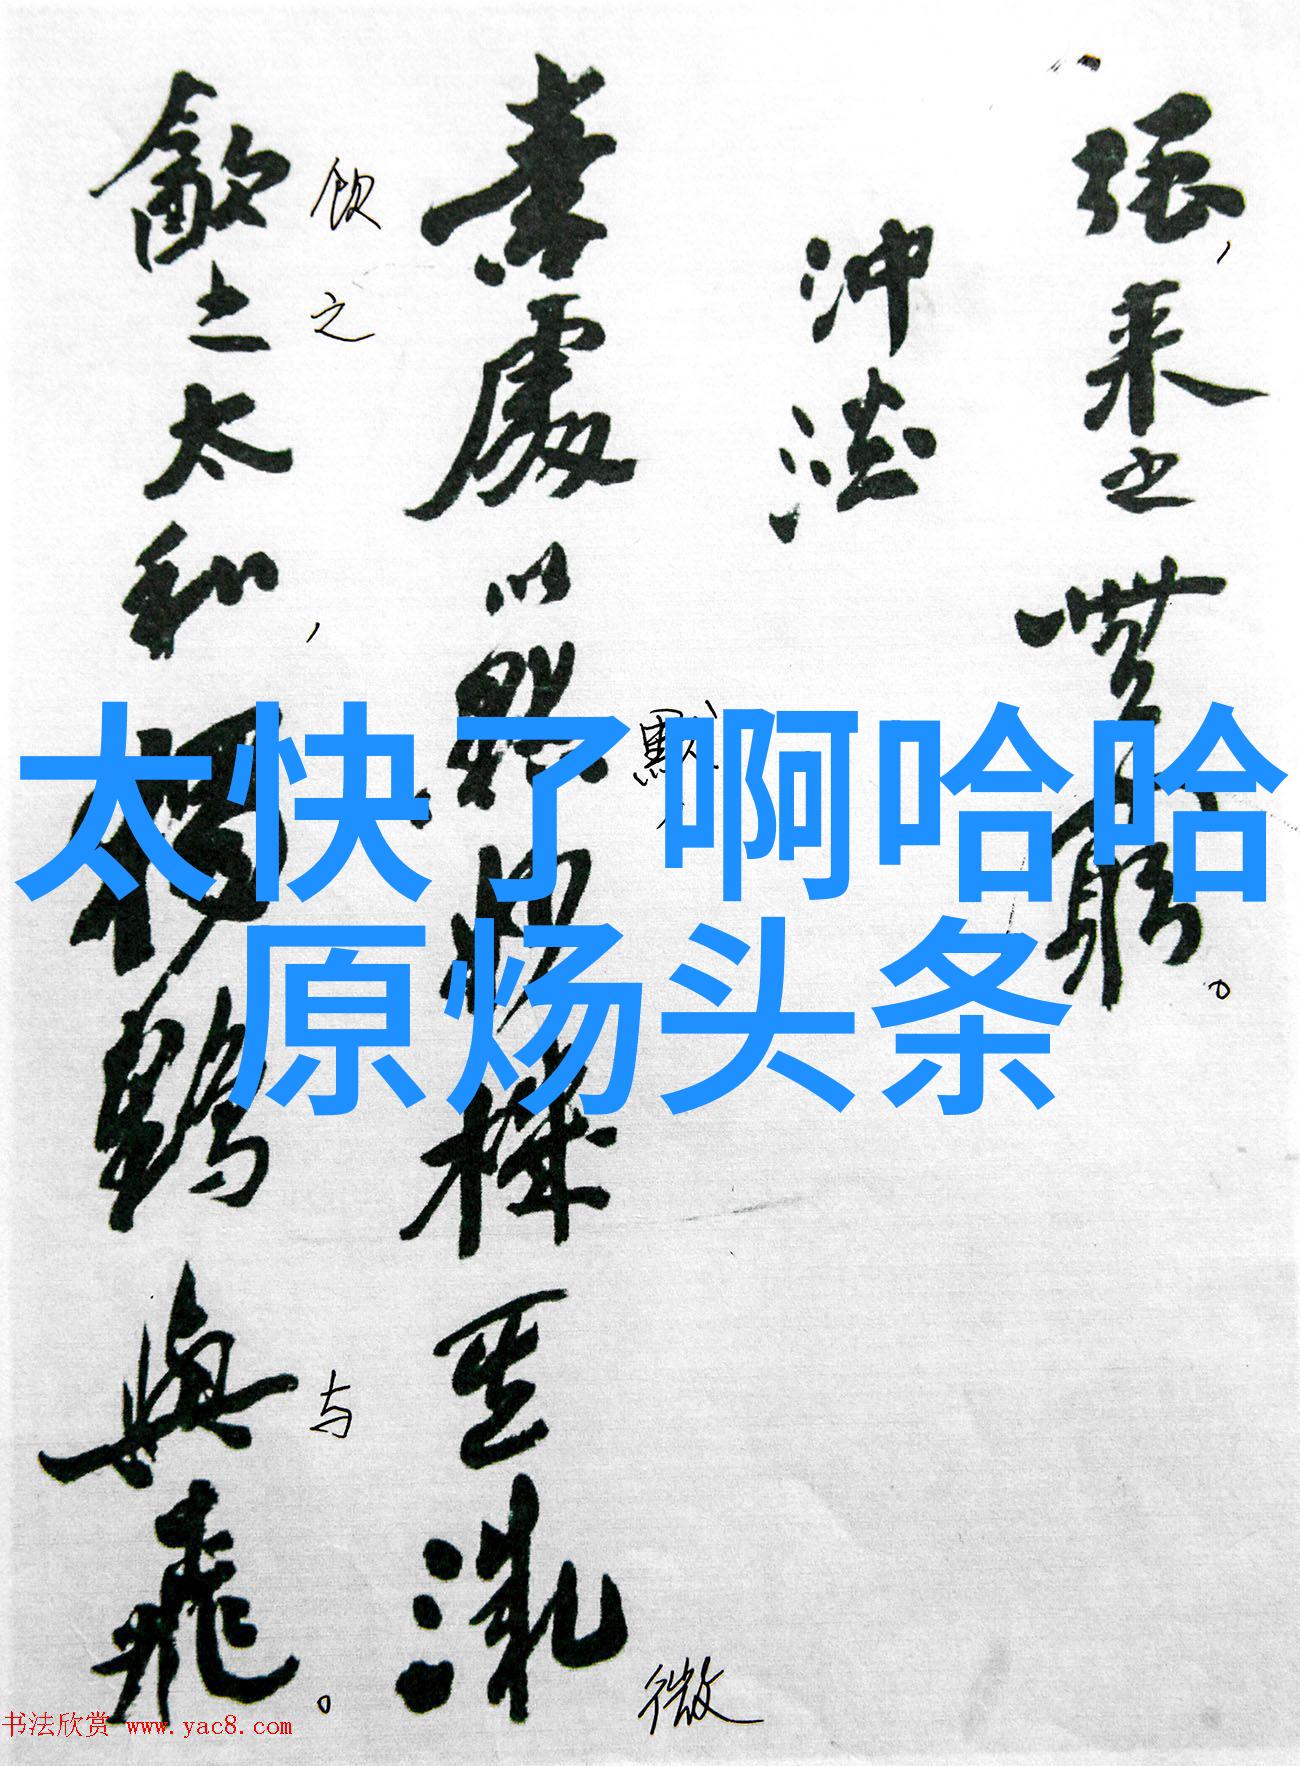 强,来之
無窮。
冲澹
素處以默
妙機其微
飲之太和,
獨鶴與飛。
饮
之
默,
与
微
太快了啊哈哈
原炀头条
书法欣赏 www.yac8.com